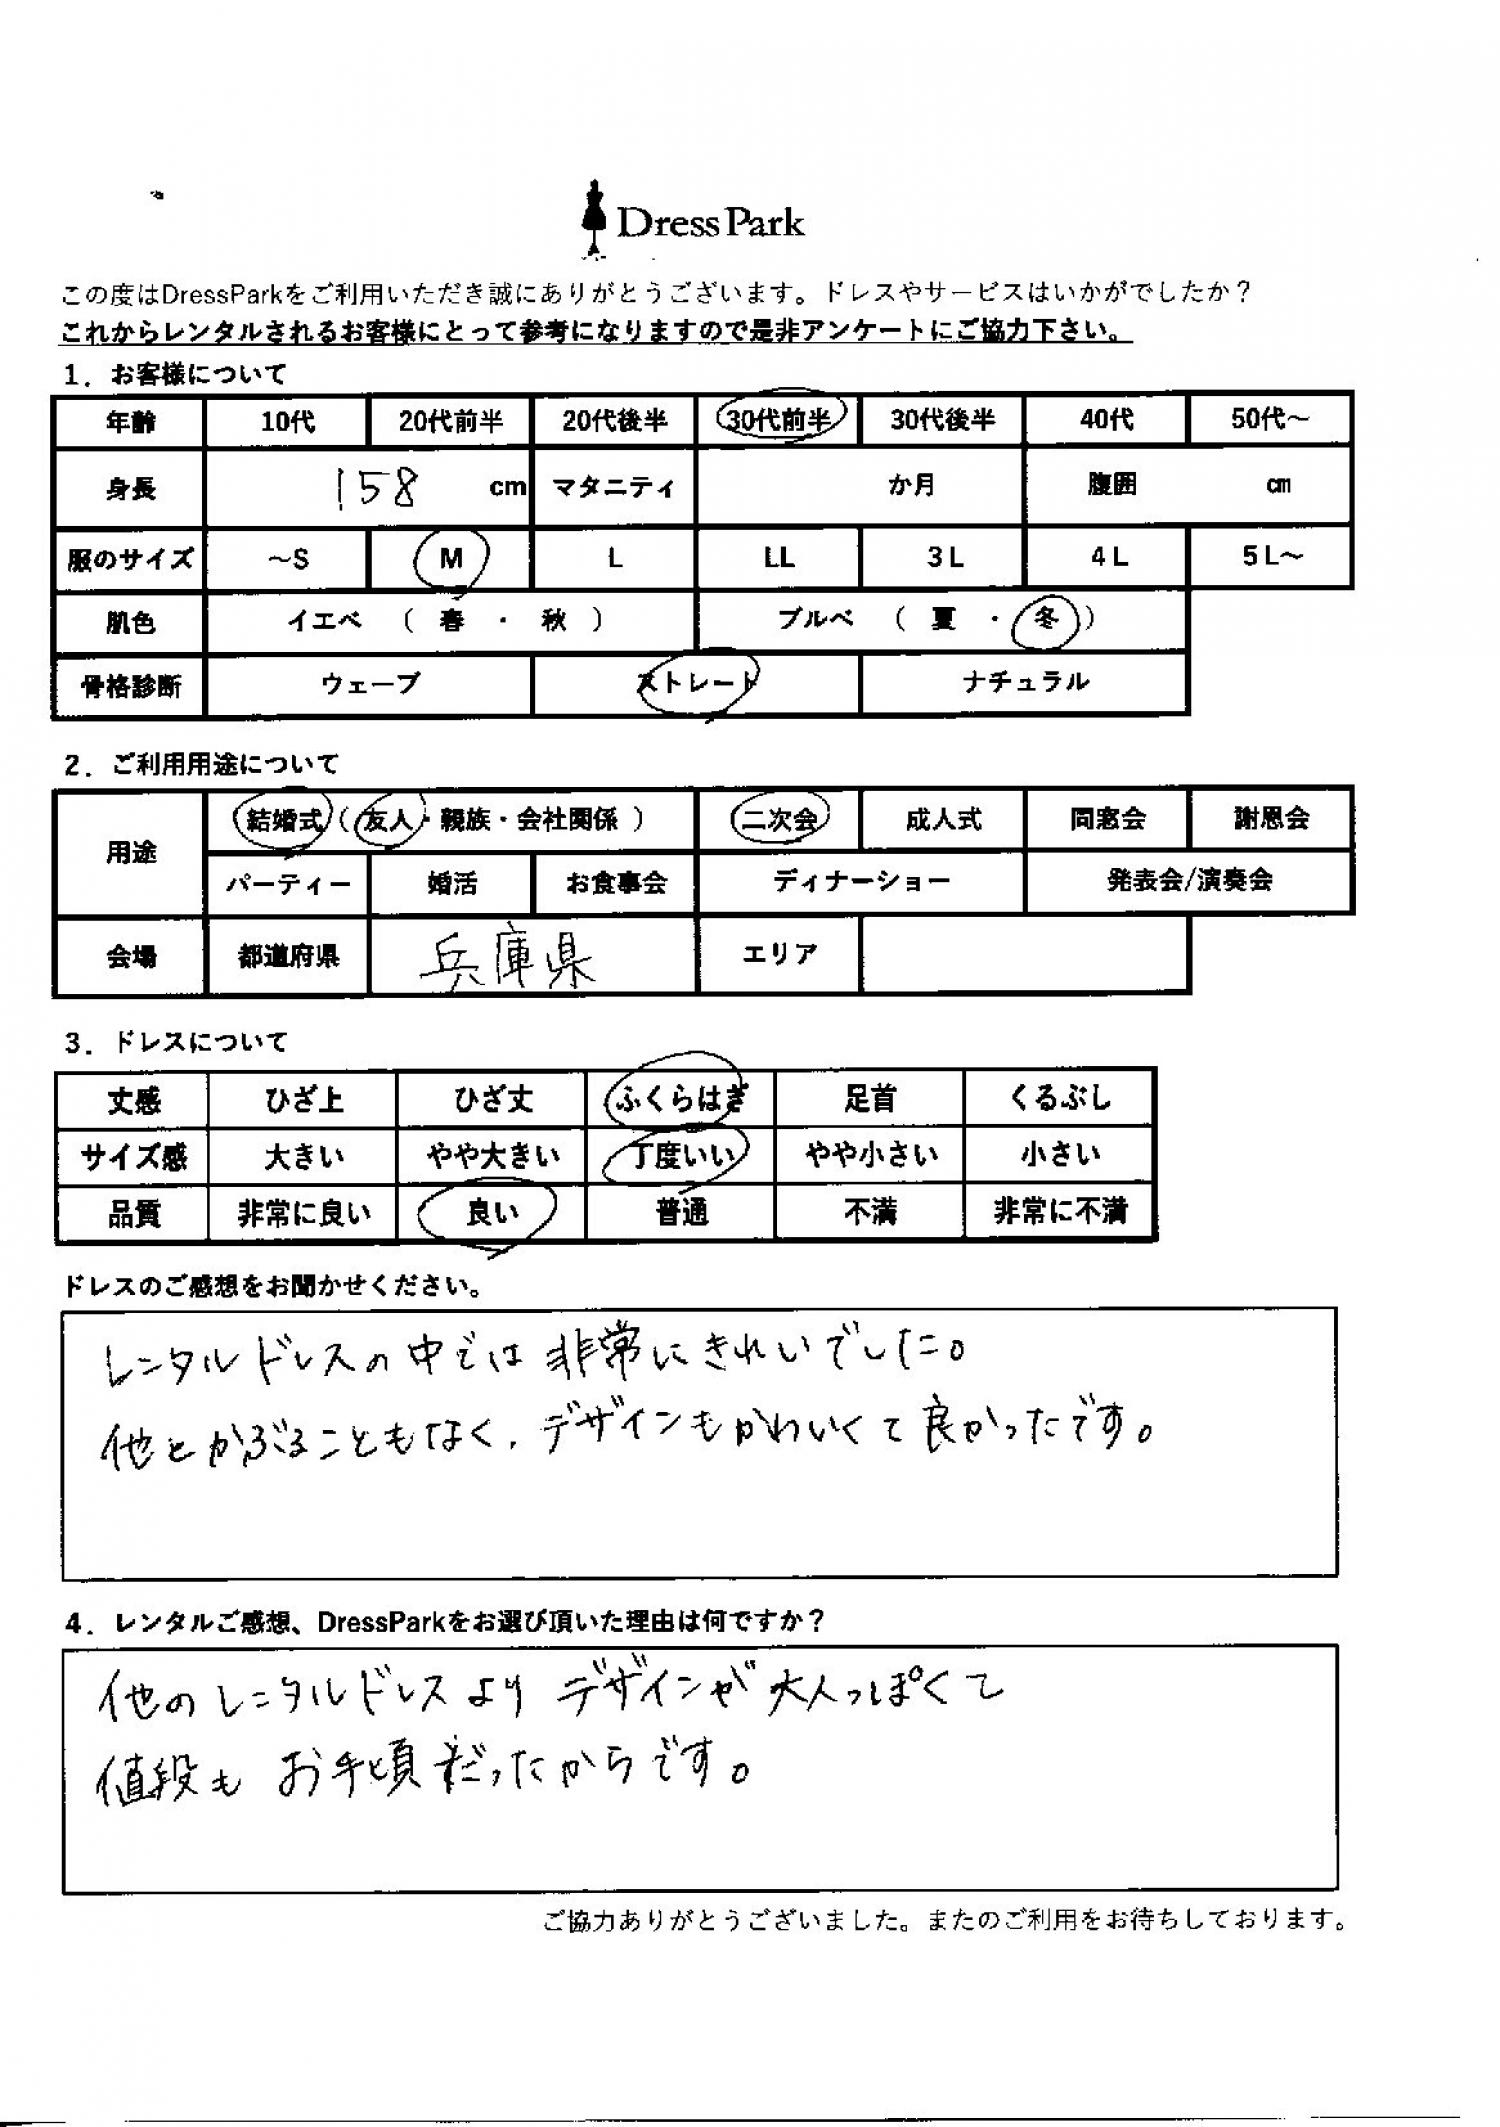 Dress Park
この度はDressParkをご利用いただき誠にありがとうございます。ドレスやサービスはいかがでしたか？
これからレンタルされるお客様にとって参考になりますので是非アンケートにご協力下さい。
1．お客様について
年齢 10代 20代前半 20代後半 30代前半 30代後半 40代 50代～
身長 158 cm マタニティ か月 腹囲 cm
服のサイズ ～S M L LL 3L 4L 5L～
肌色 イエベ （ 春 ・ 秋 ） ブルベ （ 夏 ・ 冬 ）
骨格診断 ウェーブ ストレート ナチュラル
2．ご利用用途について
用途 結婚式（ 友人・親族・会社関係 ） 二次会 成人式 同窓会 謝恩会
パーティー 婚活 お食事会 ディナーショー 発表会/演奏会
会場 都道府県 兵庫県 エリア
3．ドレスについて
丈感 ひざ上 ひざ丈 ふくらはぎ 足首 くるぶし
サイズ感 大きい やや大きい 丁度いい やや小さい 小さい
品質 非常に良い 良い 普通 不満 非常に不満
ドレスのご感想をお聞かせください。
レンタルドレスの中では非常にきれいでした。
他とかぶることもなく、デザインもかわいくて良かったです。
4．レンタルご感想、DressParkをお選び頂いた理由は何ですか？
他のレンタルドレスよりデザインが大人っぽくて
値段もお手頃だったからです。
ご協力ありがとうございました。またのご利用をお待ちしております。